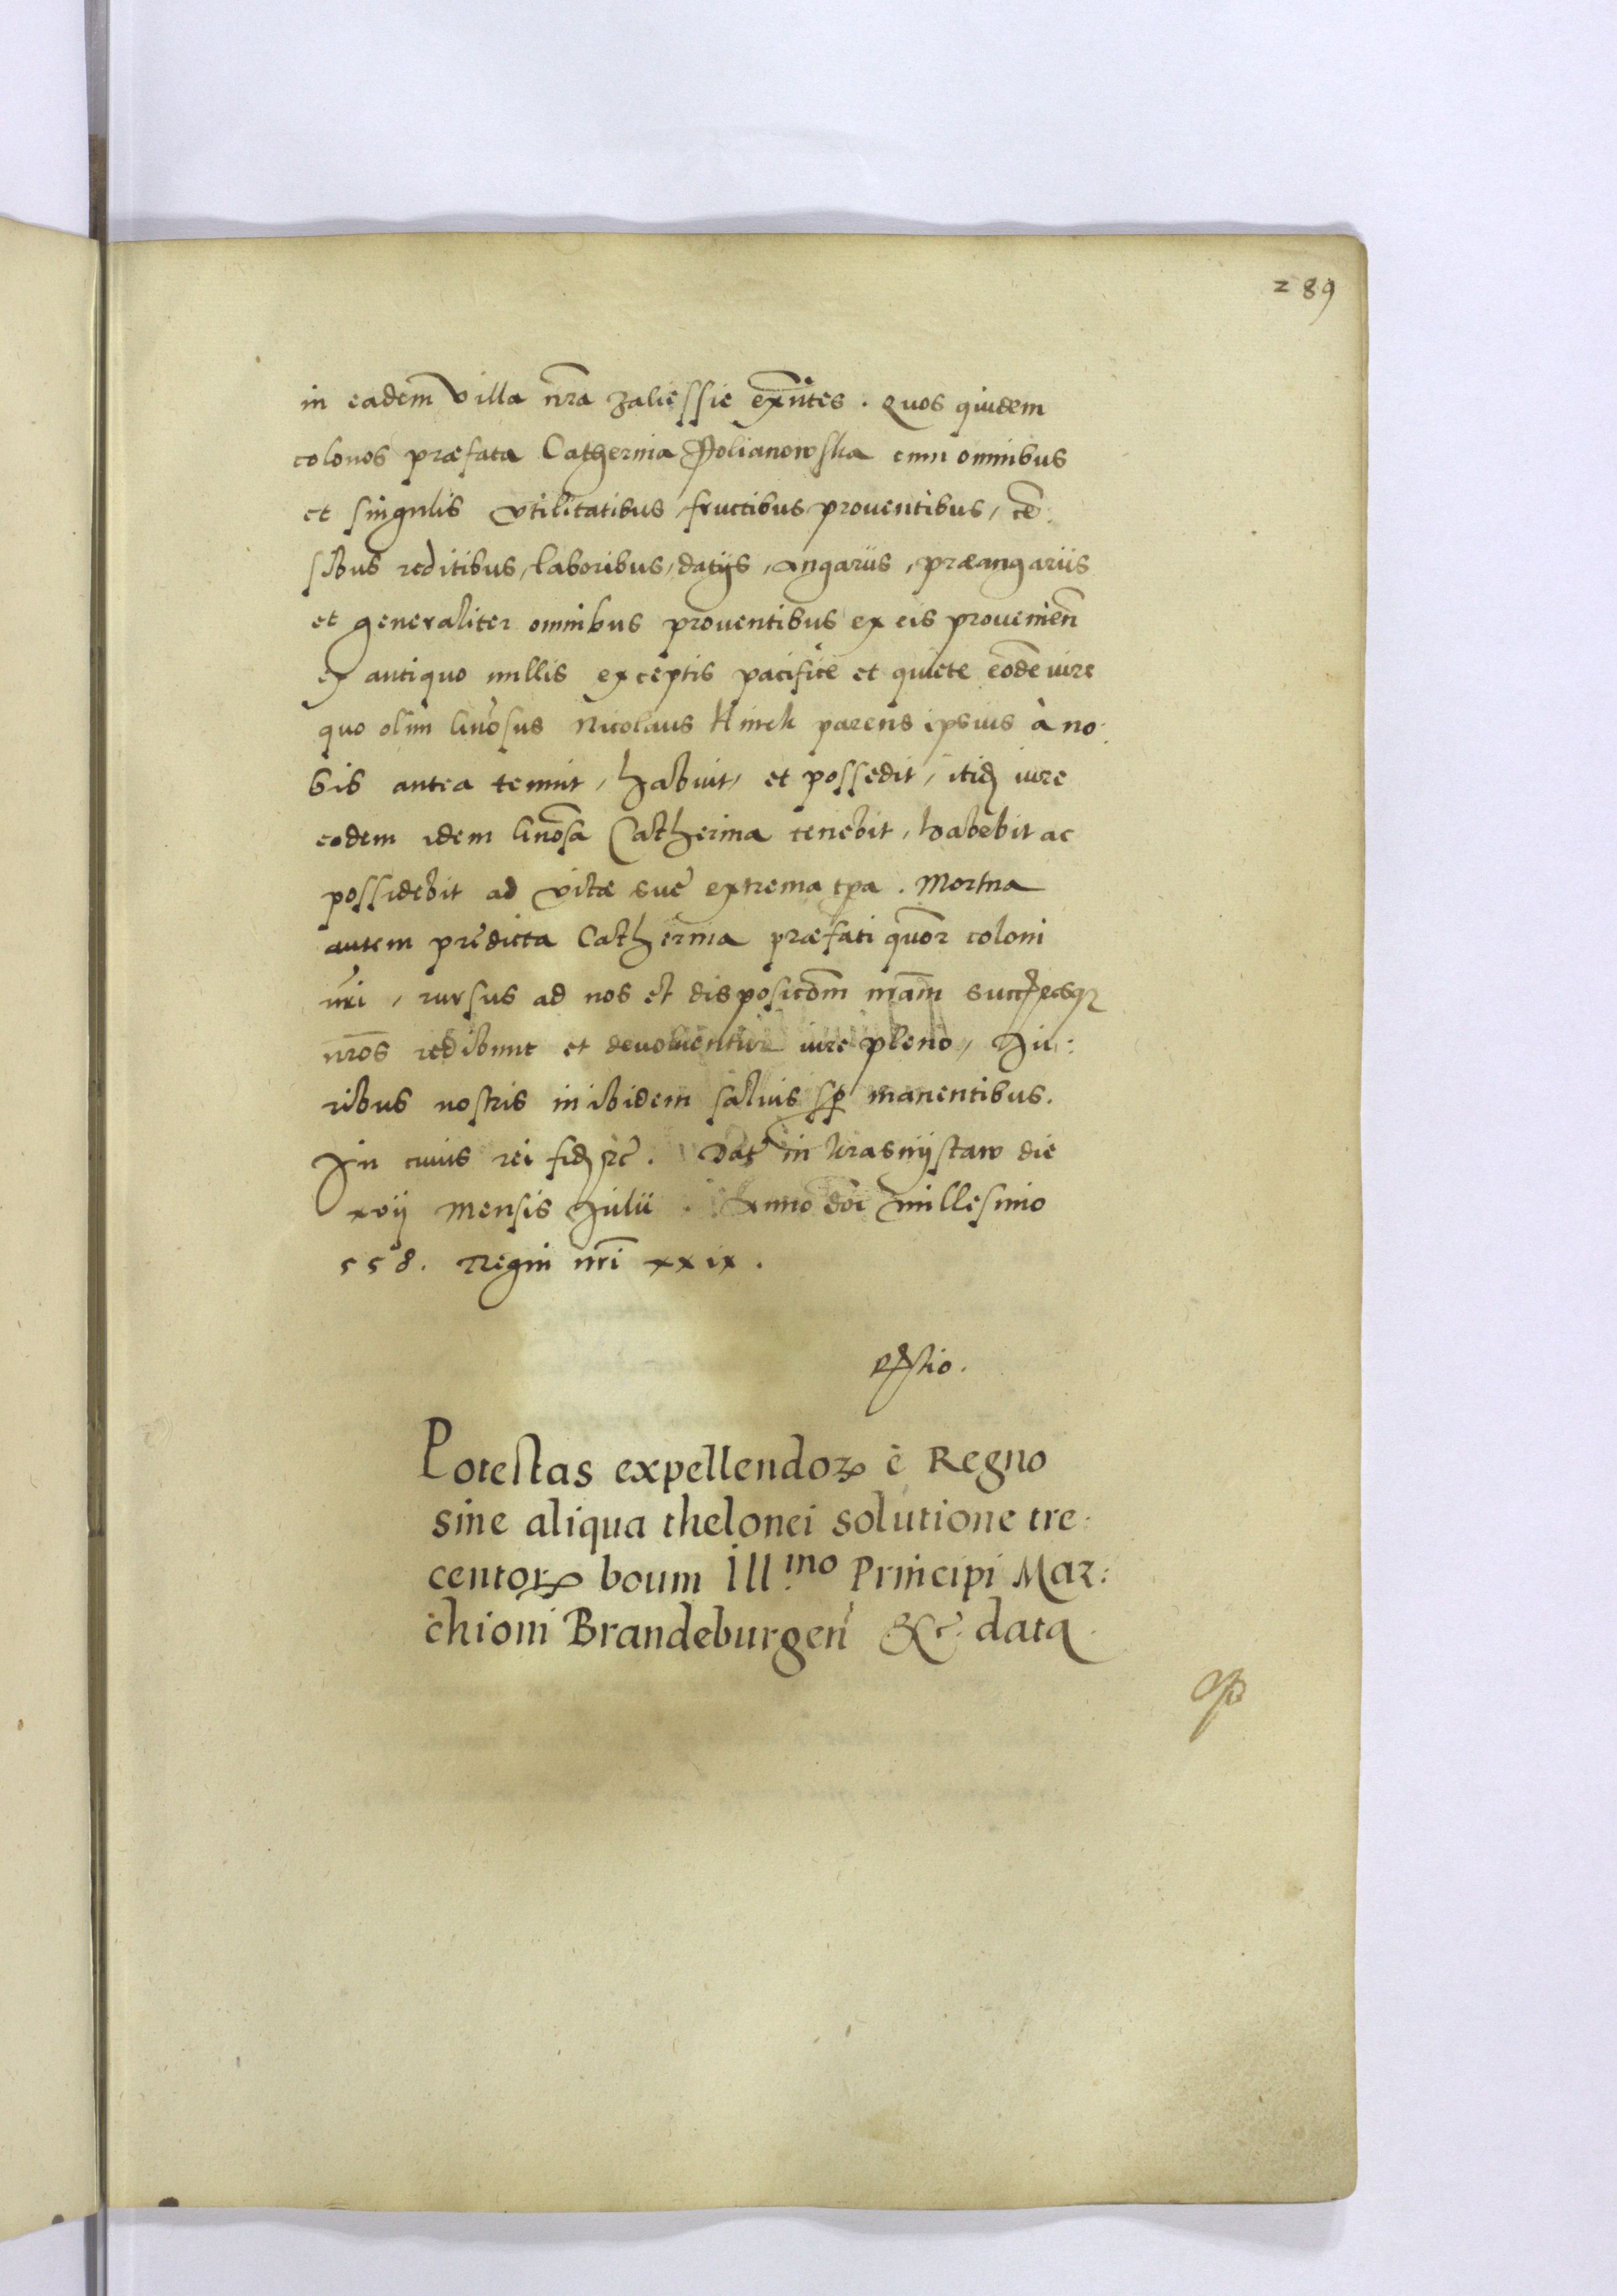 289
in eadem villa nr̃a Zaliessie exñtes. Quos quidem
colonos præfata Catherina Polianowska cum omnibus
et singulis vtilitatibus, fructibus prouentibus, cẽ:
sibus reditibus, laboribus, datijs, angariis, præangariis
et generaliter omnibus prouentibus ex eis prouenieñ
ex antiquo nullis exceptis pacifice et quiete eodẽ iure
quo olim Gñosus Nicolaus Hinek parens ipsius à no:
bis antea tenuit, habuit, et possedit, itidẽ iure
eodem idem Gñosa Catherina tenebit, habebit ac
possidebit ad vitæ suæ extrema tp̃a. Mortua
autem prędicta Catherina præfati quõr coloni
nr̃i, rursus ad nos et disposicõm nr̃am succ̃esq
nr̃os redibunt et deuoluentur iure pleno, Iu:
ribus nostris inibidem saluis sp̃ manentibus.
In cuius rei fidẽ &c. Dat in Krasnystaw die
xvij mensis Iulii. Anno dñi millesimo
558. Regni nr̃i xxix.
Potestas expellendoꝝ è Regno
sine aliqua thelonei solutione tre:
centoꝝ boum Ill.mo Principi Mar:
chioni Brandeburgeñ &c. data